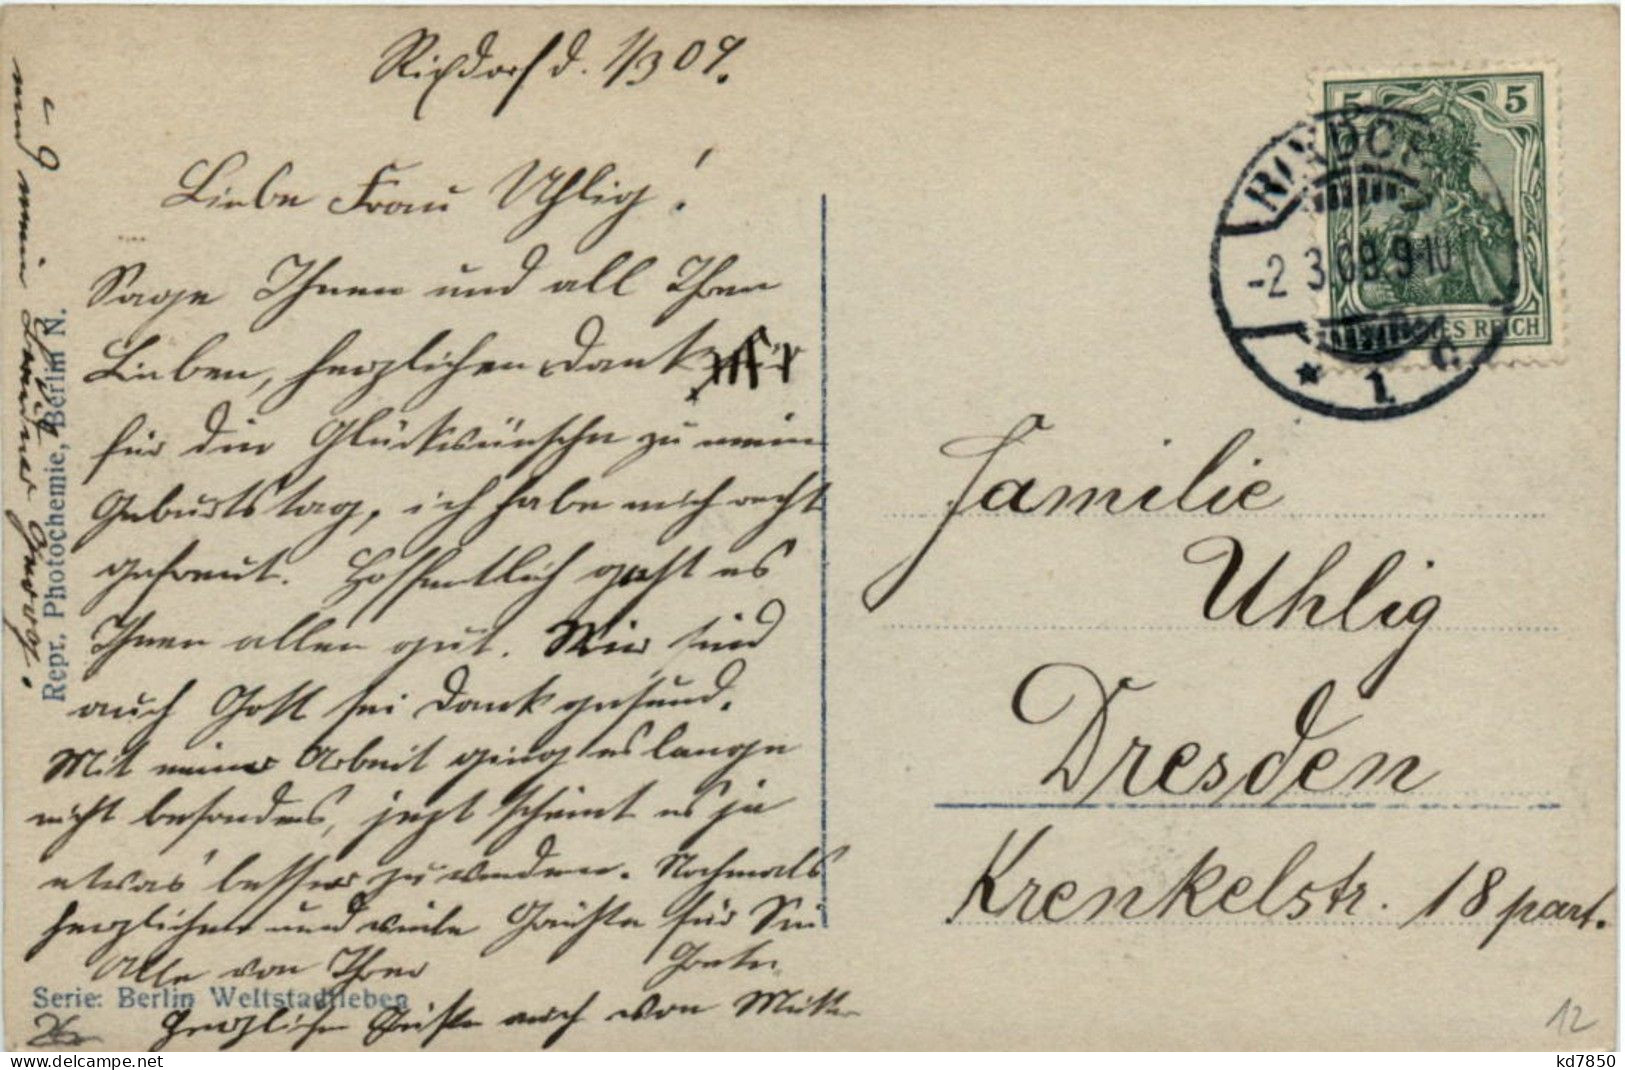 Rixdorf d. 1/3 09.
Liebe Frau Uhlig!
Sage Ihnen und all Ihren
Lieben, herzlichen Dank
für die Glückwünsche zu mein
Geburtstag, ich habe mich recht
gefreut. Hoffentlich geht es
Ihnen allen gut. Wir sind
auch Gott sei Dank gesund.
Mit meiner Arbeit ging es lange
nicht besonders, jezt scheint es ja
etwas besser zu werden. Nochmals
herzlichen und viele Grüße für Sie
Alle von Ihrer Grete
Herzliche Grüße auch von Mutter
und mein Bruder Georg.
Repr. Photochemie, Berlin N.
Serie: Berlin Weltstadtleben
5 5
DEUTSCHES REICH
RIXDORF
-2.3.09.9-10
* 1 c
Familie
Uhlig
Dresden
Krenkelstr. 18 part.
12
kd7850